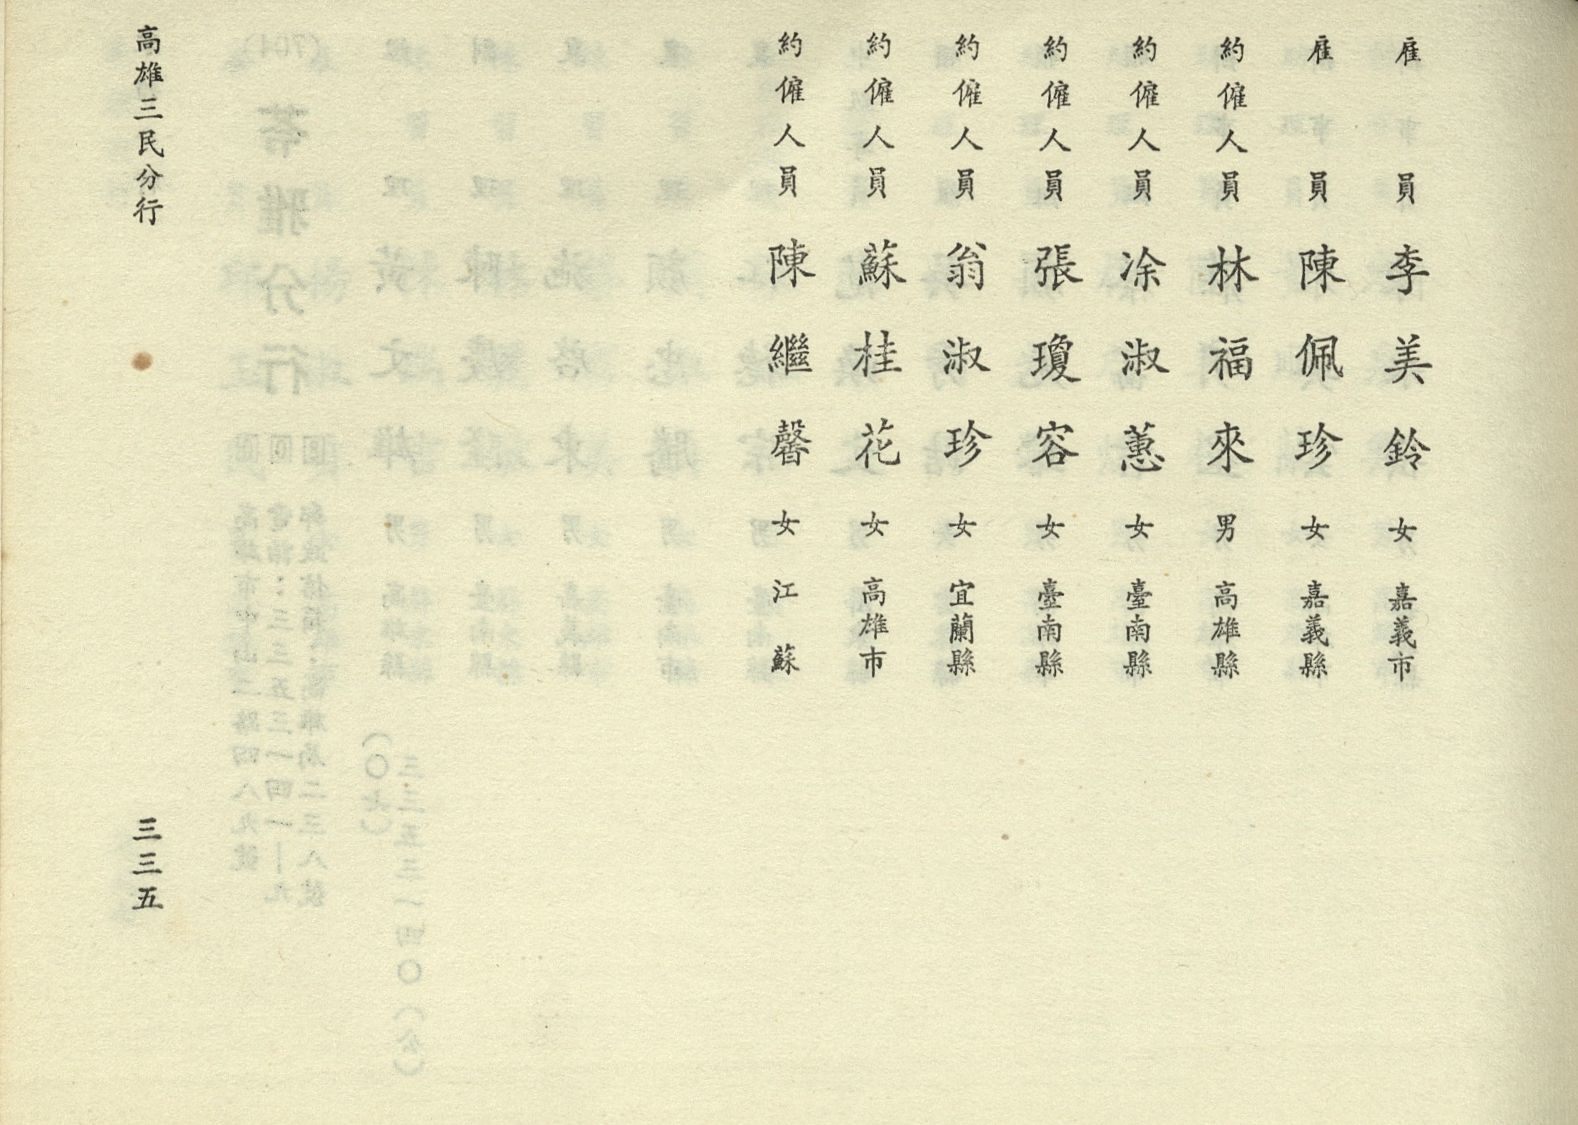 雇員李美鈴女嘉義市
雇員陳佩珍女嘉義縣
約僱人員林福來男高雄縣
約僱人員凃淑蕙女臺南縣
約僱人員張瓊容女臺南縣
約僱人員翁淑珍女宜蘭縣
約僱人員蘇桂花女高雄市
約僱人員陳繼馨女江蘇
高雄三民分行
三三五